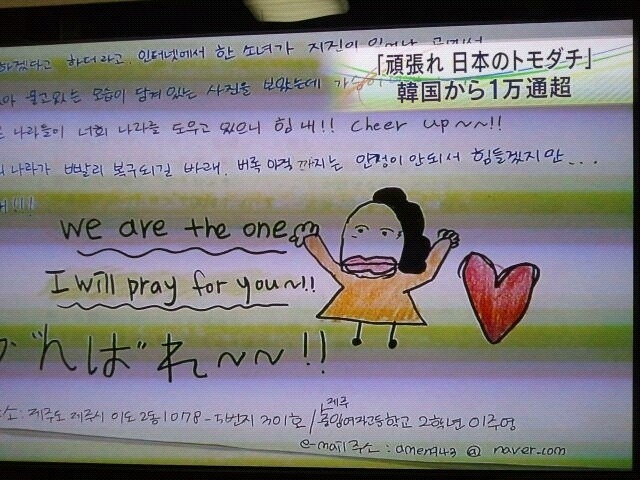 하겠다고 하더라고. 인터넷에서 한 소녀가 지진이 일어난
「頑張れ 日本のトモダチ」
韓国から1万通超
울고있는 모습이 담겨 있는 사진을 보았는데
나라들이 너희 나라를 도우고 있으니 힘내!! Cheer up~~!!
나라가 빨리 복구되길 바래. 비록 아직 까지는 안정이 안되서 힘들겠지만...
we are the one
I will pray for you~!!
がんばれ~~!!
주소: 제주도 제주시 이도2동 1078-5번지 301호 / 제주
중앙여자고등학교 2학년 이주영
e-mail주소: @ naver.com